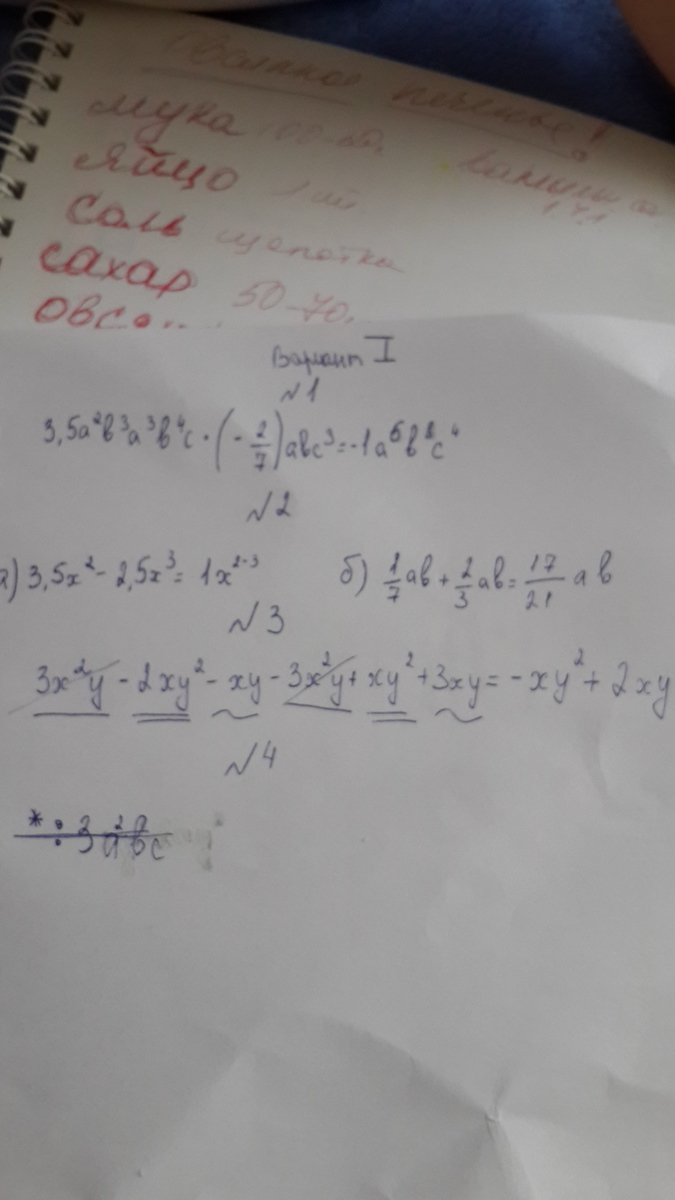 печенье!
мука 100-
яйцо 1 шт.
соль щепотка
сахар 50-70.
овс....
Вариант I
№1
3,5a²b³a³b⁴c · (-2/7)abc³=-1a⁶b⁸c⁴
№2
а) 3,5x² - 2,5x³ = 1x²⁻³ б) 1/7 ab + 2/3 ab = 17/21 ab
№3
3x²y - 2xy² - xy - 3x²y + xy² + 3xy = -xy² + 2xy
№4